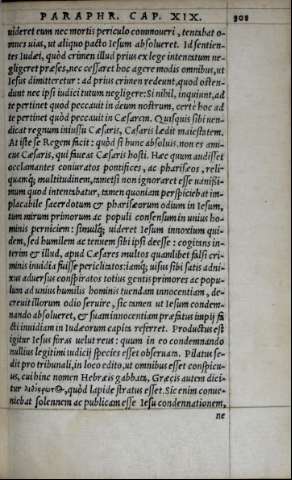 PARAPHR. CAP. XIX. 308
uideret eum nec mortis periculo commoueri, tentabat o-
mneis uias, ut aliquo pacto Iesum absolueret. Id sentien-
tes Iudæi, quòd crimen illud prius ex lege intentatum ne-
gligeret præses, nec cessaret hoc agere modis omnibus, ut
Iesus dimitteretur: ad prius crimen redeunt, quod osten-
dunt nec ipsi iudici tutum negligere: Si nihil, inquiunt, ad
te pertinet quod peccauit in deum nostrum, certè hoc ad
te pertinet quòd peccauit in Cæsarem. Quisquis sibi uen-
dicat regnum iniussu Cæsaris, Cæsaris lædit maiestatem.
At iste se Regem facit: quòd si hunc absoluis, non es ami-
cus Cæsaris, qui faueas Cæsaris hosti. Hæc quum audisset
occlamantes coniuratos pontifices, ac pharisæos, reli-
quamq́; multitudinem, tametsi non ignoraret esse uanissi-
mum quod intentabatur, tamen quoniam perspiciebat im-
placabile sacerdotum & pharisæorum odium in Iesum,
tum mirum primorum ac populi consensum in unius ho-
minis perniciem: simulq́; uideret Iesum innoxium qui-
dem, sed humilem ac tenuem sibi ipsi deesse: cogitans in-
terim & illud, apud Cæsares multos quamlibet falsi cri-
minis inuidia fuisse periclitatos: iamq́; uisus sibi satis adni-
xus aduersus conspiratos totius gentis primores ac popu-
lum ad unius humilis hominis tuendam innocentiam, de-
creuit illorum odio seruire, sic tamen ut Iesum condem-
nando absolueret, & suam innocentiam præfatus impij fa-
cti inuidiam in Iudæorum capita referret. Productus est
igitur Iesus foras uelut reus: quum in eo condemnando
nullius legitimi iudicij species esset obseruata. Pilatus se-
dit pro tribunali, in loco edito, ut omnibus esset conspicu-
us, cui hinc nomen Hebræis gabbata, Græcis autem dici-
tur λιθόστρωτον, quòd lapide stratus esset. Sic enim conue-
niebat solennem ac publicam esse Iesu condemnationem,
ne